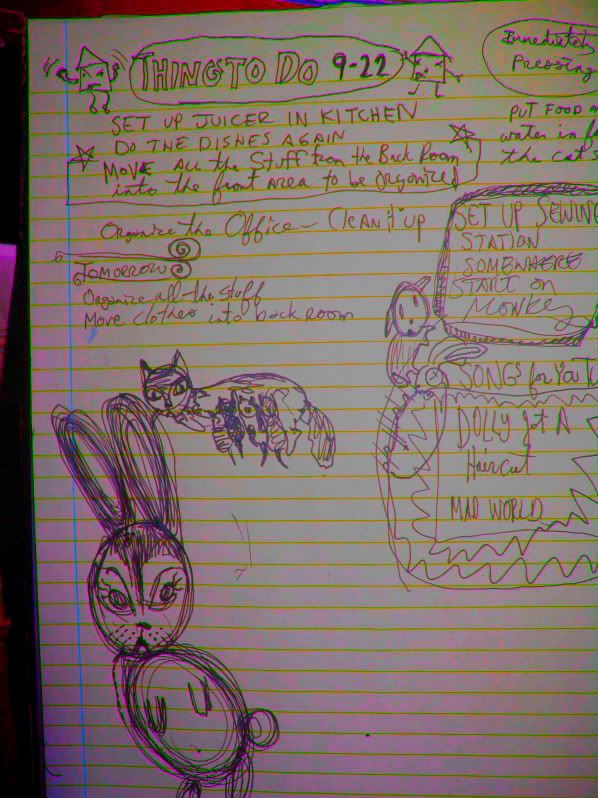 THINGS TO DO 9-22
Immediately
Pressing
PUT FOOD
water in
the cat's
SET UP JUICER IN KITCHEN
DO THE DISHES AGAIN
MOVE ALL the Stuff from the Back Room
into the front AREA to be Organized
Organize the Office - Clean it up
TOMORROW
Organize all the stuff
Move clothes into back room
SET UP SEWING
STATION
SOMEWHERE
START on
MONKEY
SONGS for YouTu
DOLLY got A
Haircut
MAD WORLD